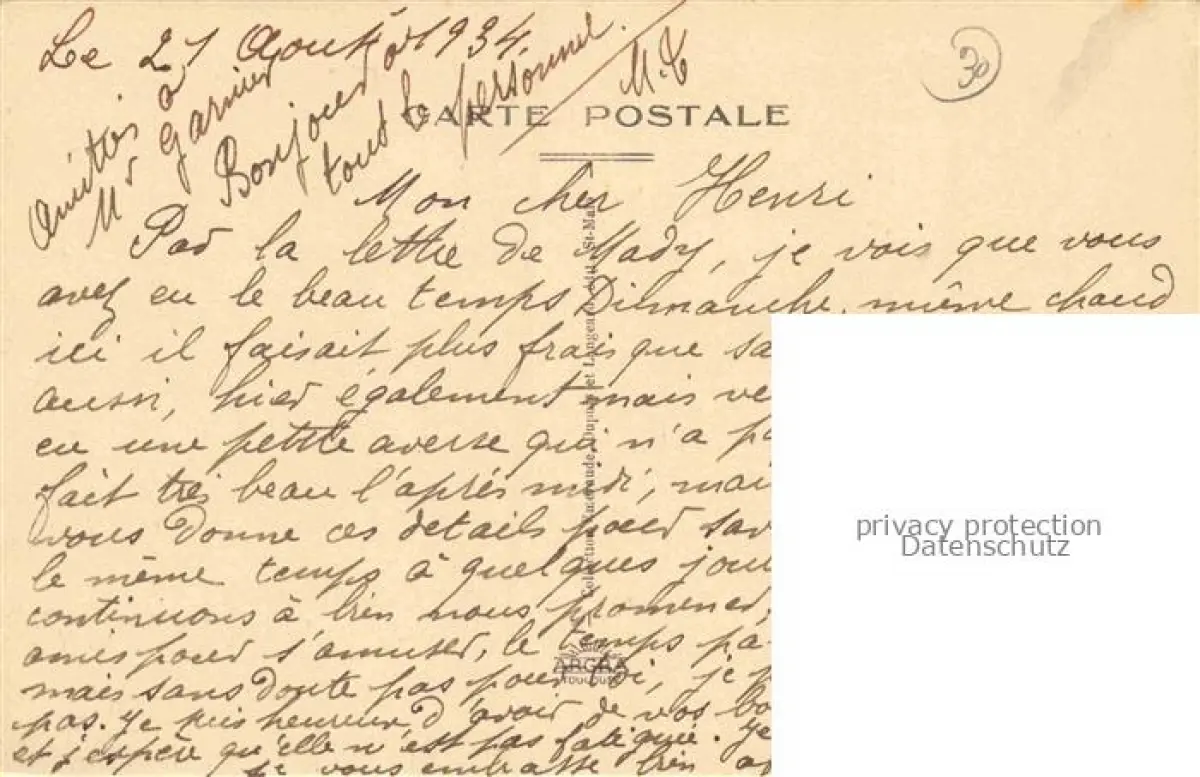 Le 21 Août 1934.
Amitiés à
Mr Garnier
Bonjour à
tout le personnel.
M.C
30
CARTE POSTALE
Mon cher Henri
Par la lettre de Mady, je vois que vous
avez eu le beau temps Dimanche, même chaud
ici il faisait plus frais que sa
aussi, hier également mais ve
eu une petite averse qui n'a pa
fait très beau l'après midi, mai
vous donne ces details pour sav
le même temps à quelques jour
continuons à bien nous promener,
amis pour s'amuser, le temps pa
mais sans doute pas pour toi, je p
pas. Je suis heureux d'avoir de vos bo
et j'espère qu'elle n'est pas fatiguée. Je
je vous embrasse bien
Dupuy et Lingens, édit. St-Malo
ARGRA
TOULOUSE
privacy protection
Datenschutz